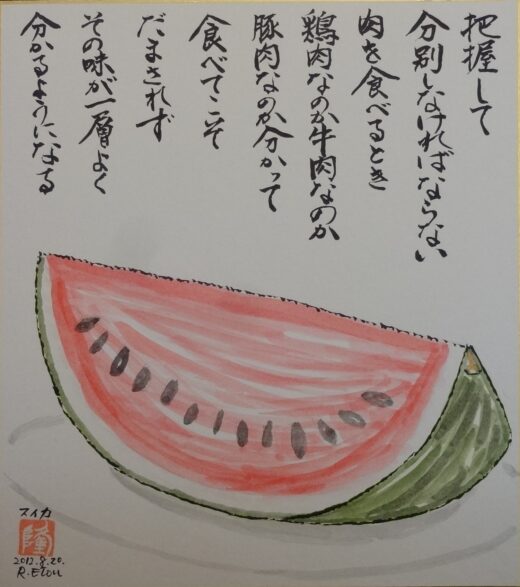 把握して
分別しなければならない
肉を食べるとき
鶏肉なのか牛肉なのか
豚肉なのか分かって
食べてこそ
だまされず
その味が一層よく
分かるようになる
スイカ
隆
2012.8.20.
R.Etou